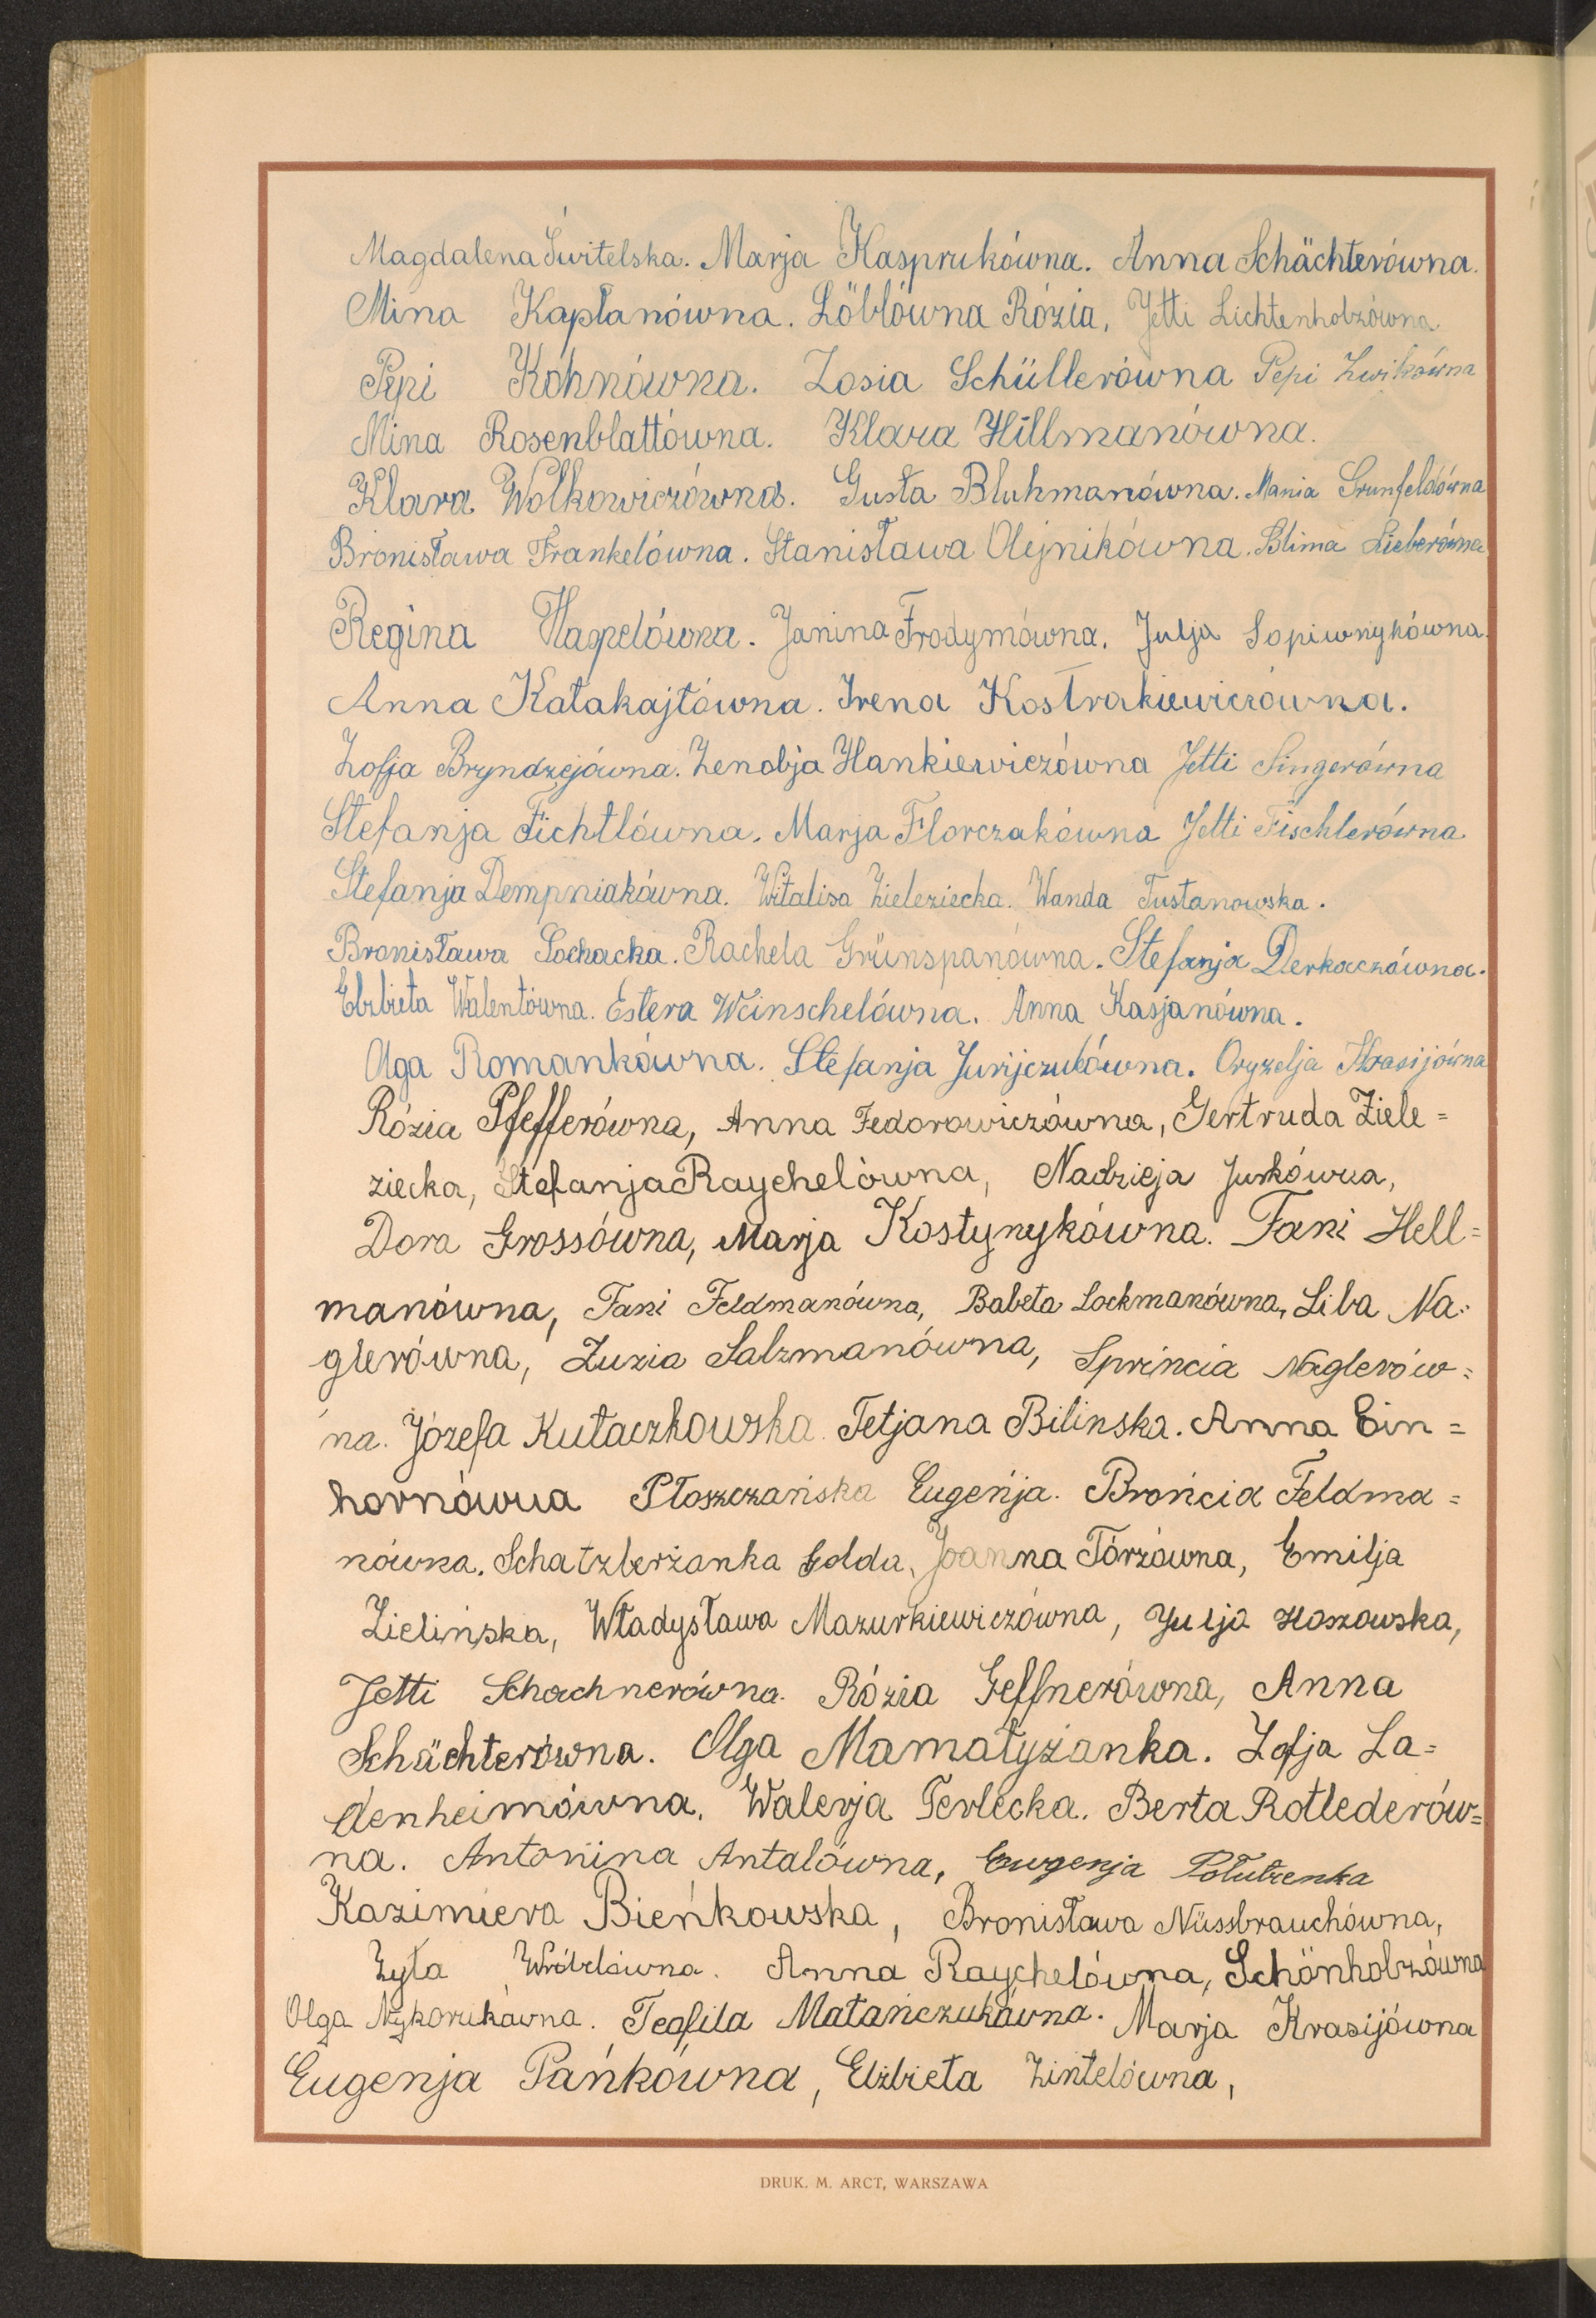 Magdalena Świtelska. Marja Kasprukówna. Anna Schächterówna.
Mina Kapłanówna. Löblówna Rózia, Jetti Lichtenholzówna
Pepi Kohnówna. Zosia Schüllerówna Pepi Zwikówna
Mina Rosenblattówna. Klara Hillmanówna.
Klara Wolkowiczówna. Gusta Bluhmanówna. Mania Grunfeldówna
Bronisława Frankelówna. Stanisława Olejnikówna. Blima Lieberówna
Regina Haspelówna. Janina Frodymówna. Julja Sopiwnykówna.
Anna Katakajtówna. Irena Kostrakiewiczówna.
Zofja Bryndzejówna. Zenobja Hankiewiczówna Jetti Singerówna
Stefanja Fichtlówna. Marja Florczakówna Jetti Fischlerówna
Stefanja Dempniakówna. Witalisa Zieleziecka. Wanda Tustanowska.
Bronisława Sochacka. Rachela Grünspanówna. Stefanja Derkaczówna.
Elzbieta Walentówna. Estera Weinschelówna. Anna Kasjanówna.
Olga Romankówna. Stefanja Jurijczukówna. Oryzelja Krasijówna
Rózia Pfefferówna, Anna Fedorowiczówna, Gertruda Ziele=
ziecka, Stefanja Raychelówna, Nadzieja Jurkówna,
Dora Grossówna, Marja Kostynykówna. Fani Hell=
manówna, Fani Feldmanówna, Babeta Lockmanówna, Liba Na=
glerówna, Zuzia Salzmanówna, Sprincia Naglerów=
na. Józefa Kułaczkowska. Tetjana Bilinska. Anna Ein=
hornówna Płoszczańska Eugenja. Brońcia Feldma=
nówna. Schatzberżanka Golda, Joanna Tórzówna, Emilja
Zielińska, Władysława Mazurkiewiczówna, Julja Hoszowska,
Jetti Schachnerówna. Rózia Geffnerówna, Anna
Schächterówna. Olga Mamałyżanka. Zofja La=
denheimówna. Walerja Terlecka. Berta Rotlederów=
na. Antonina Antalówna, Eugenja Połutrenka
Kazimiera Bieńkowska, Bronisława Nüssbrauchówna,
Zyta Wróblówna. Anna Raychelówna, Schönholzówna
Olga Nykorukówna. Teofila Matańczukówna. Marja Krasijówna
Eugenja Pańkówna, Elżbieta Zintelówna,
DRUK. M. ARCT, WARSZAWA